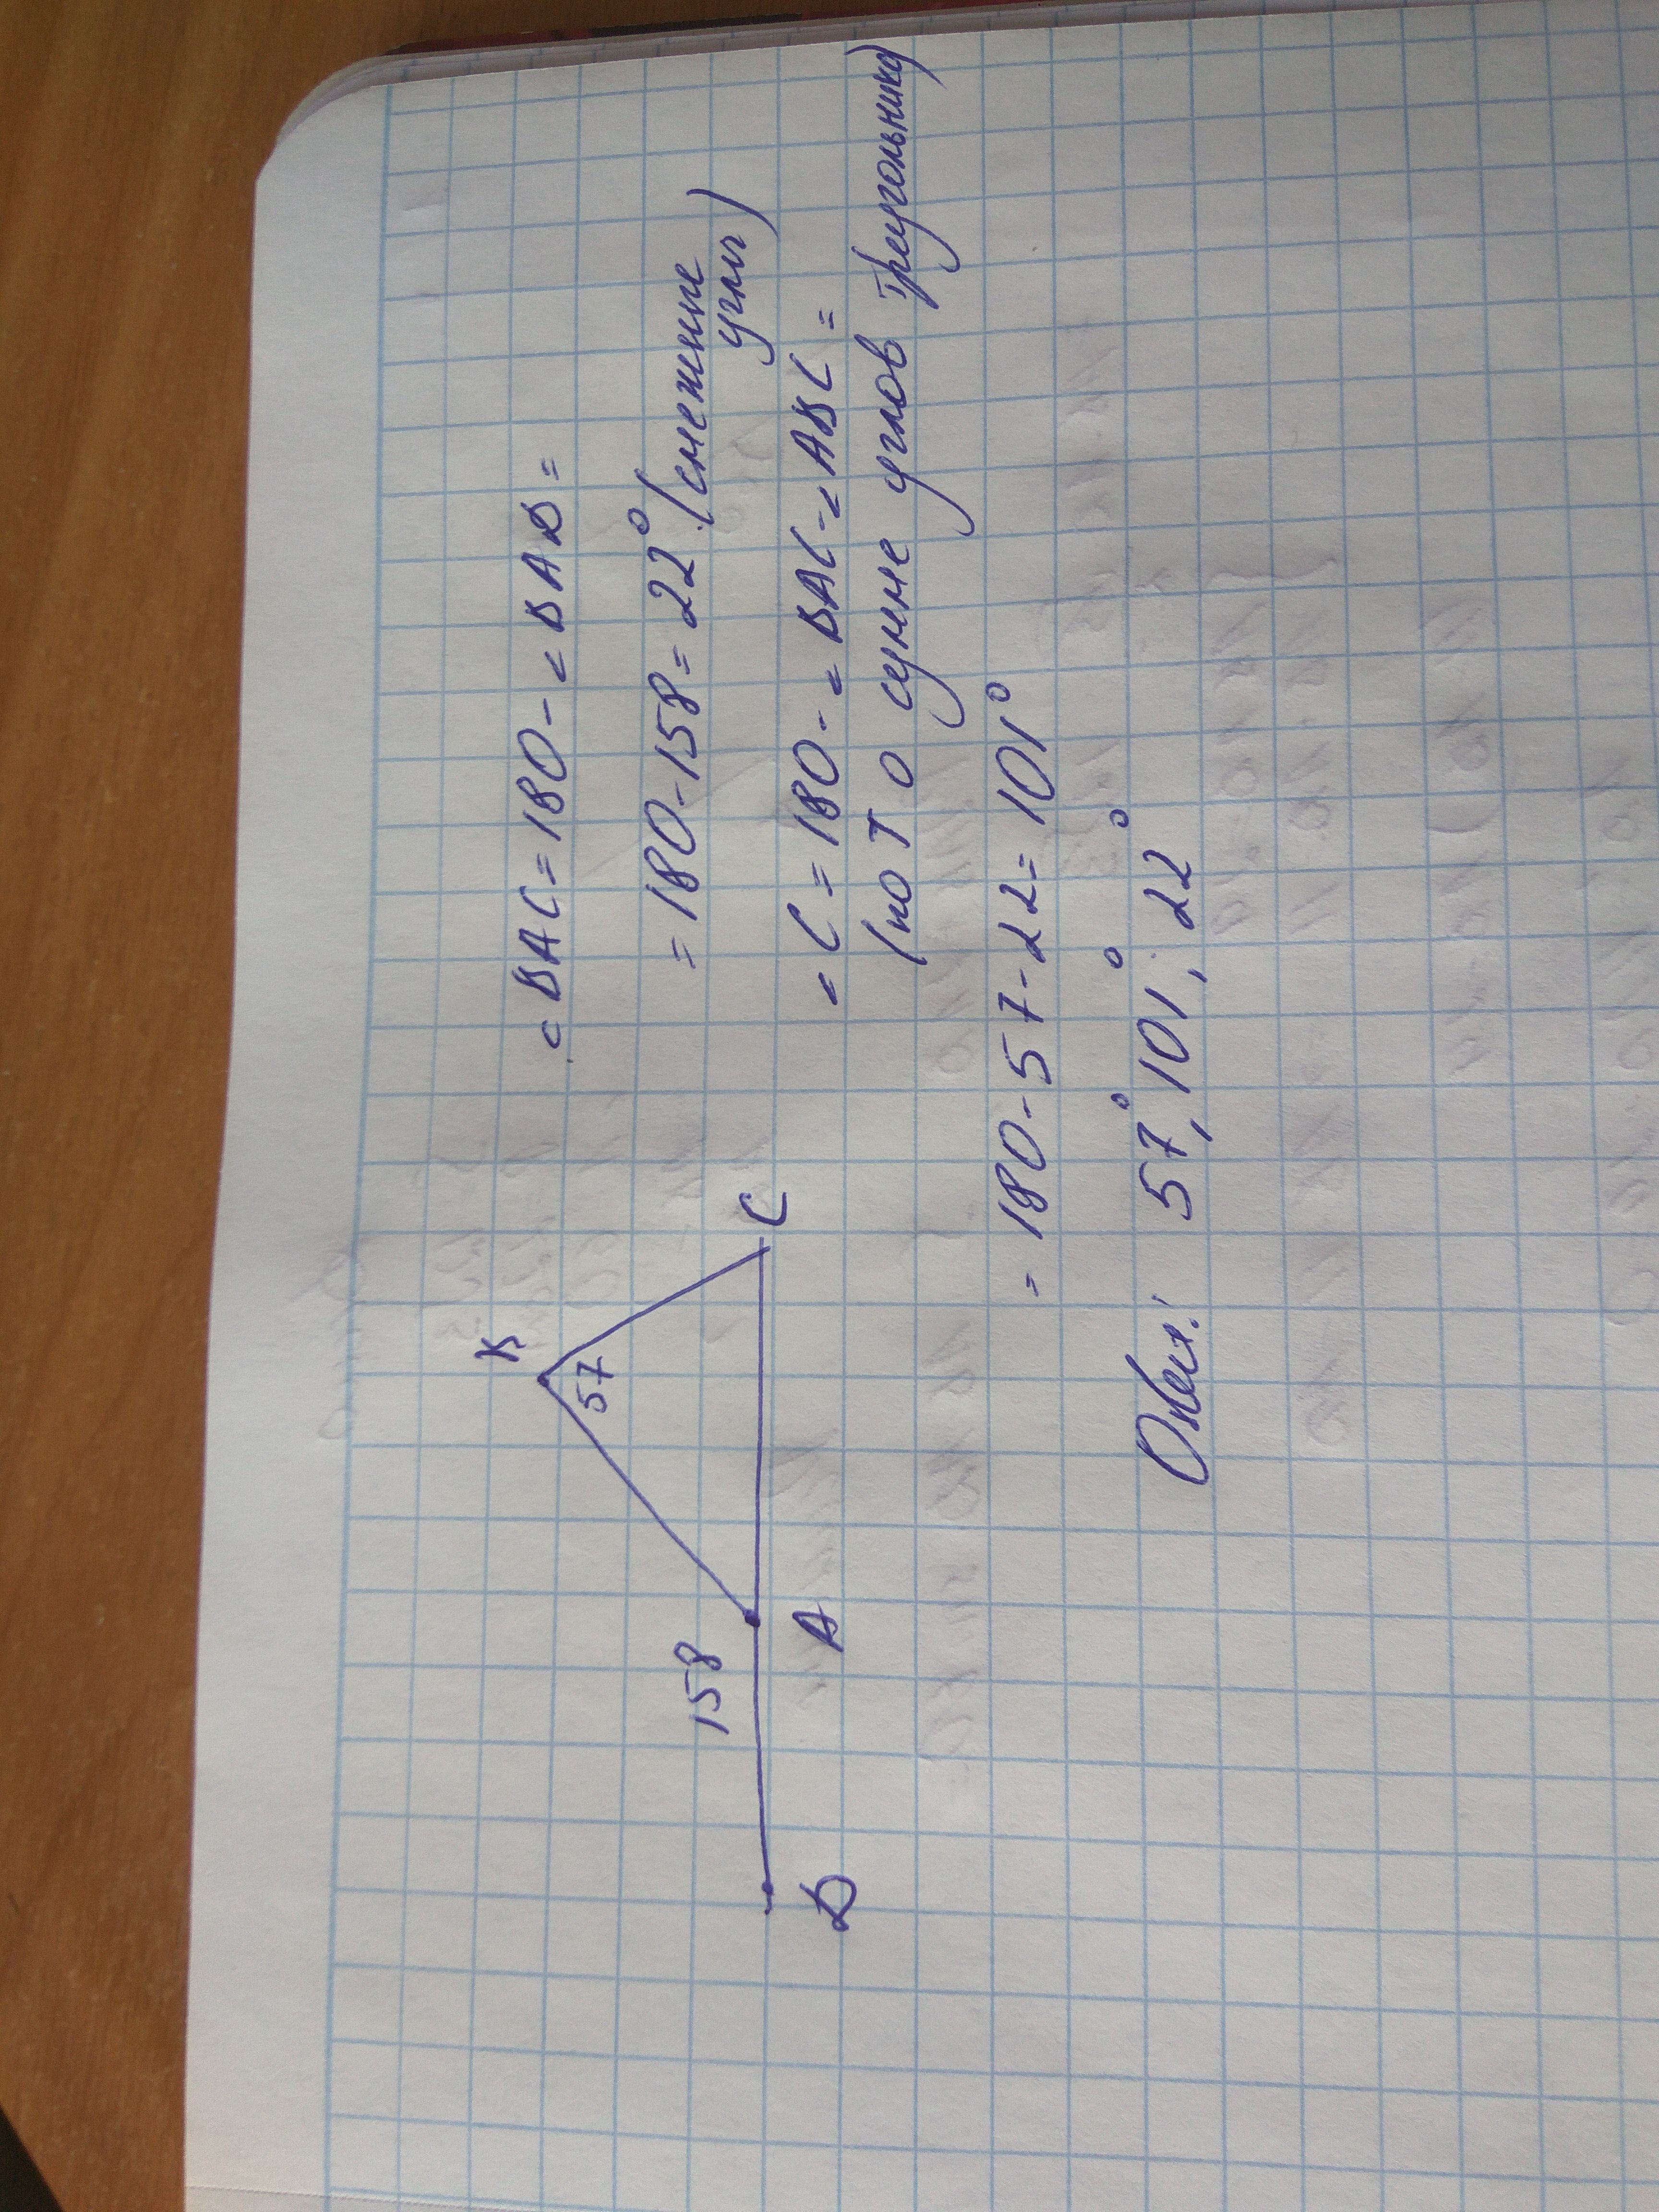 B
57
158
D
A
C
∠BAC=180-∠BAD=
=180-158=22° (смежные
углы)
∠C=180-∠BAC-∠ABC=
(по Т о сумме углов треугольника)
=180-57-22=101°
Ответ: 57°, 101°, 22°